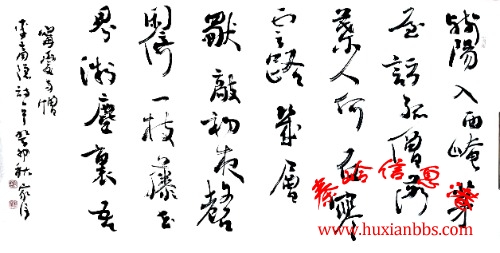 殘陽入西崦茅
屋訪孤僧落
葉人何在寒
雲路幾層
獨敲初夜磬
閒倚一枝藤世
界微塵裏吾
寧愛與憎
李商隱詩一首癸卯秋
秦岭信
www.huxianbbs.com